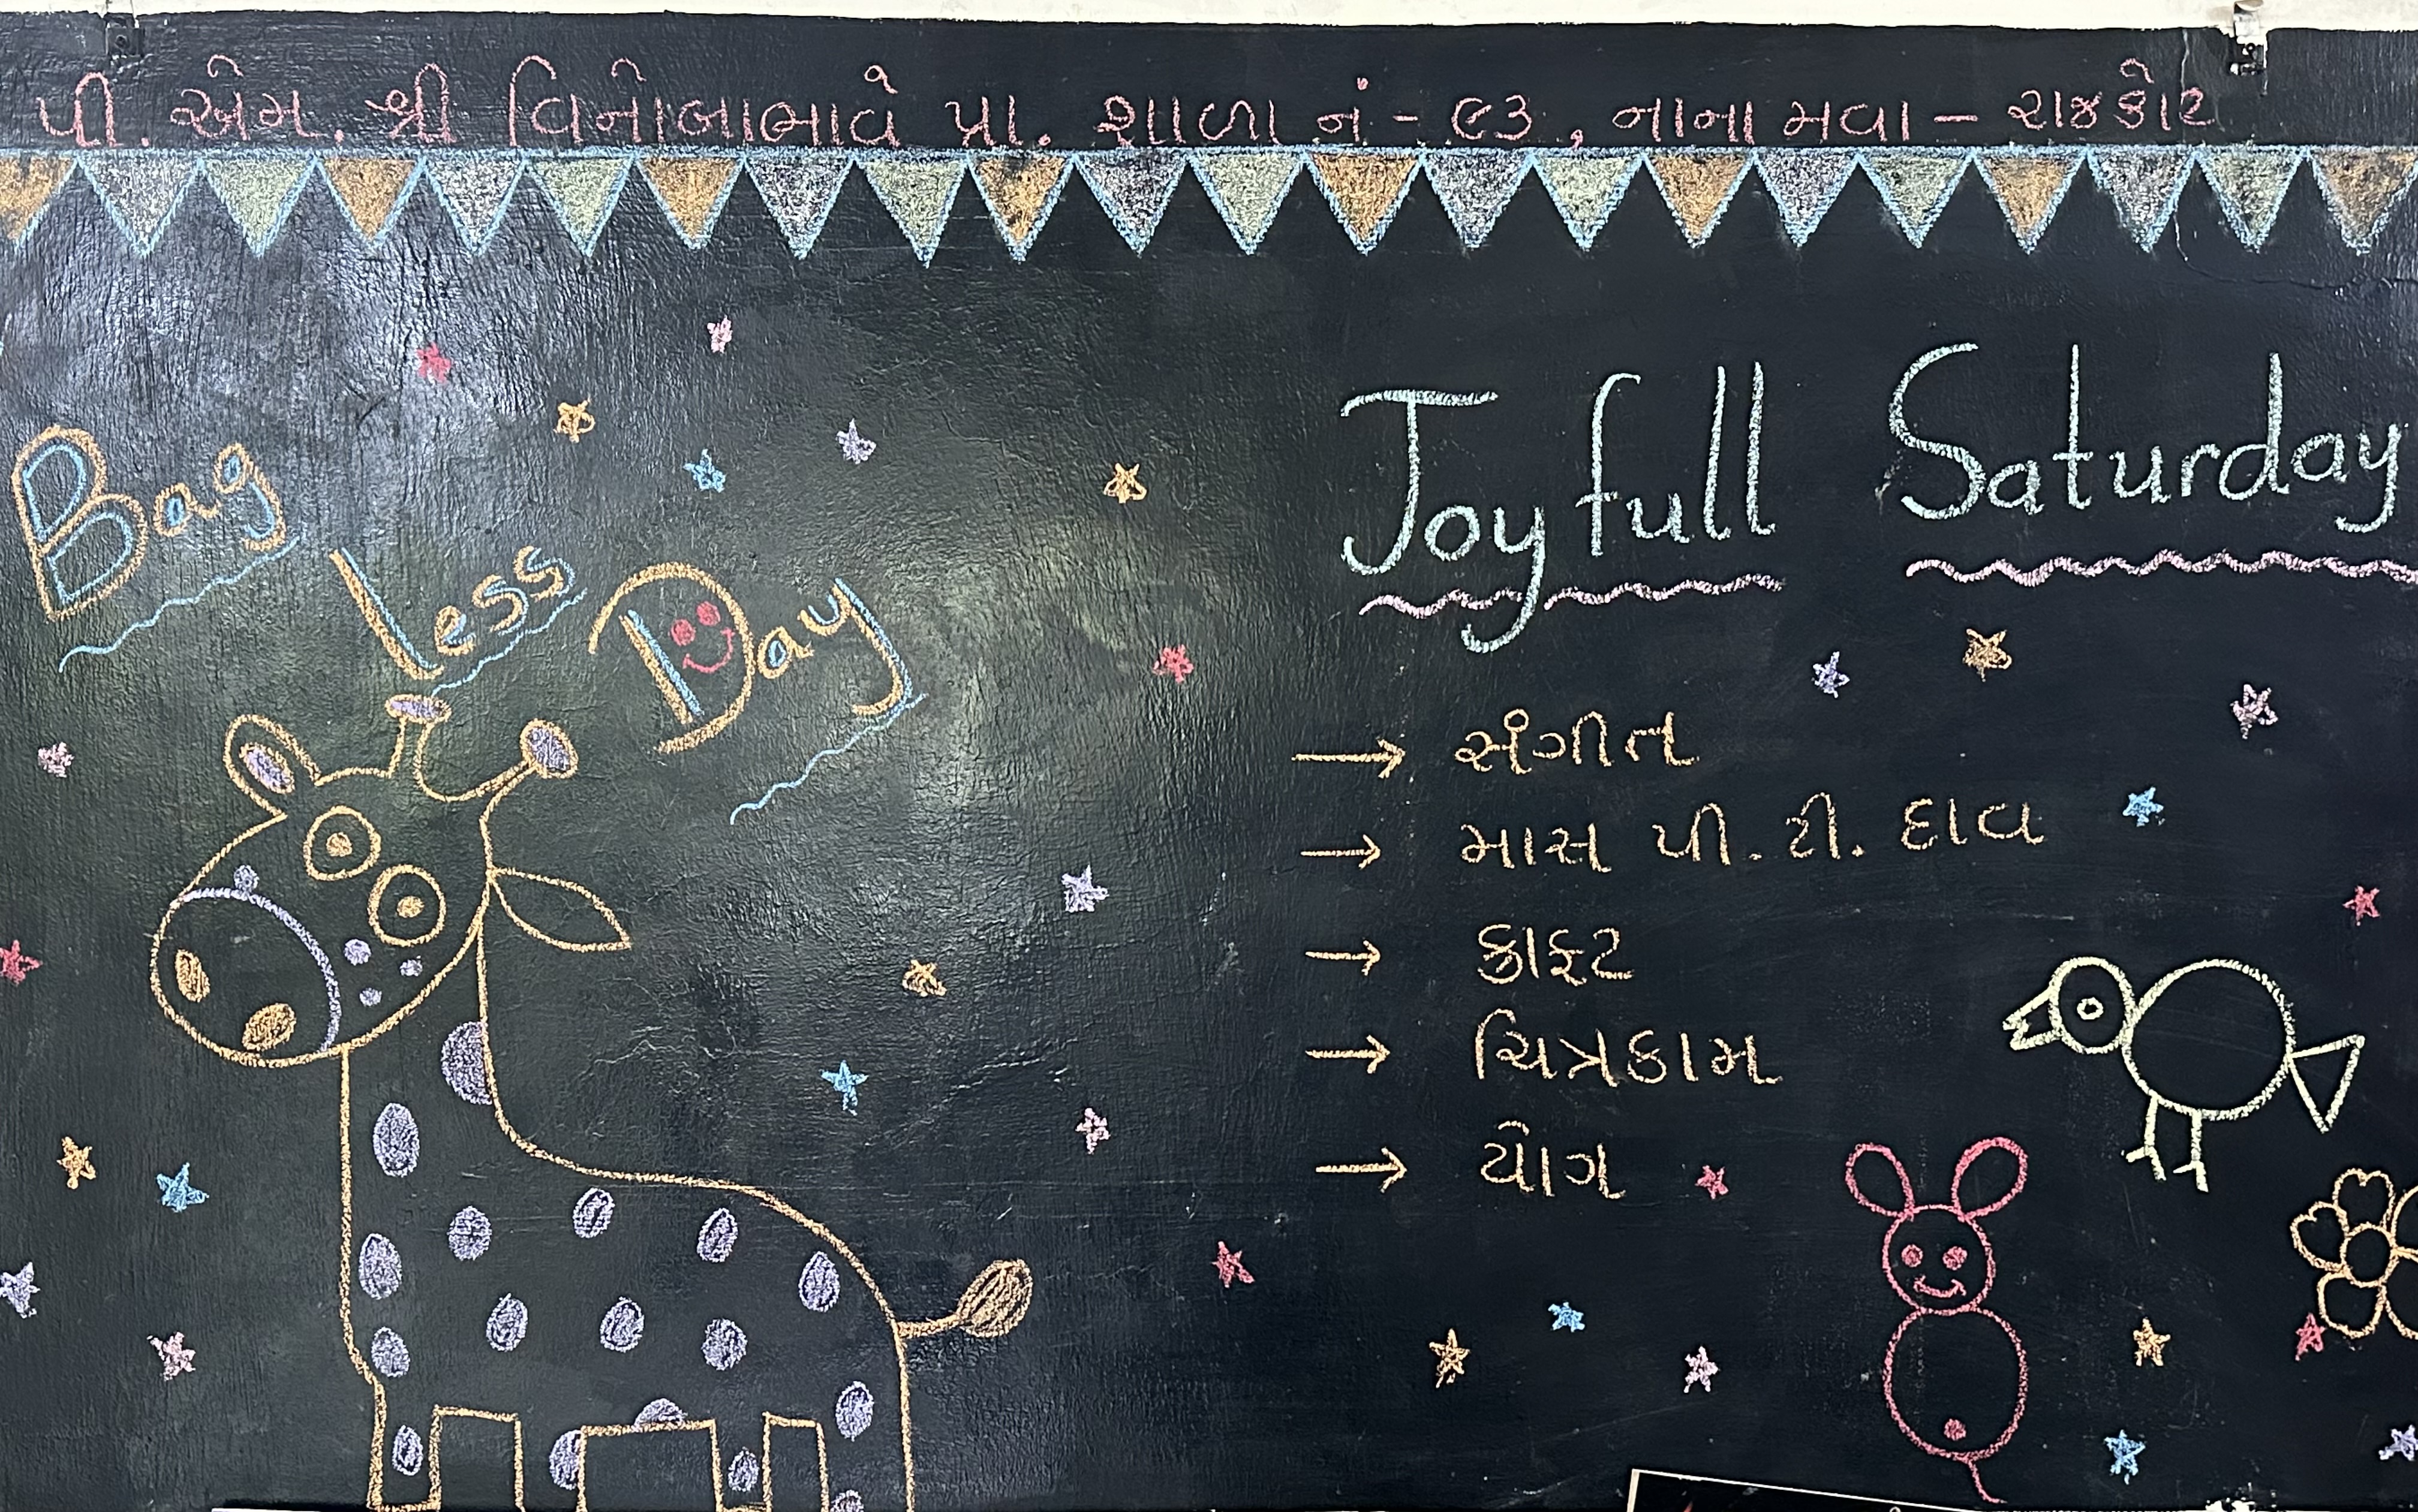 પી. એમ. શ્રી વિનોબાભાવે પ્રા. શાળા નં - ૯૩, નાના મવા - રાજકોટ
Bag Less Day
Joyfull Saturday
→ સંગીત
→ માસ પી. ટી. દાવ
→ ક્રાફટ
→ ચિત્રકામ
→ યોગ